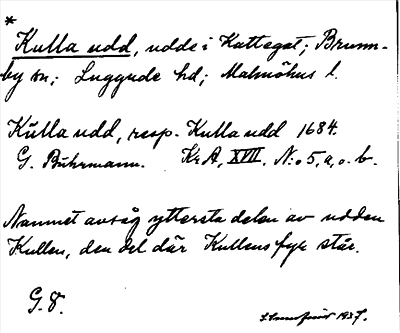 *
Kulla udd, udde i Kattegat; Brunn-
by sn; Luggude hd; Malmöhus l.
Kulla udd, resp. Kulla udd 1684.
G. Buhrmann. Kr A, XVII, N:o 5, a, o. b.
Namnet avsåg yttersta delen av udden
Kullen, den del där Kullens fyr står.
G. V.
1937.